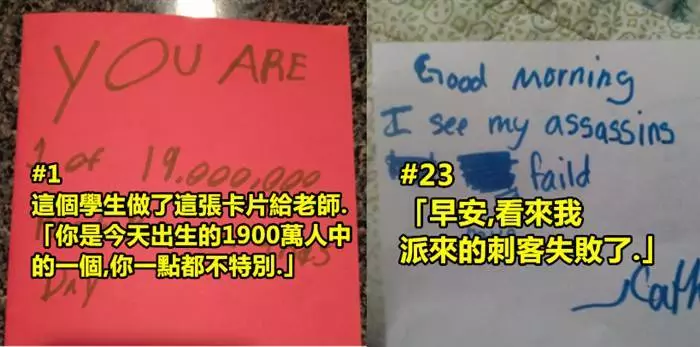 YOU ARE
1 of 19.000,000
#1
這個學生做了這張卡片給老師.
「你是今天出生的1900萬人中
的一個,你一點都不特別.」
Day
Good morning
I see my assassins
faild
#23
「早安,看來我
派來的刺客失敗了.」